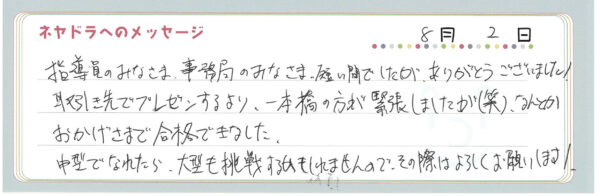 ネヤドラへのメッセージ
8月 2日
指導員のみなさま、事務局のみなさま、短い間でしたが、ありがとうございました!
取引き先でプレゼンするより、一本橋の方が緊張しましたが(笑)、なんとか
おかげさまで合格できました。
中型でなれたら、大型も挑戦するかもしれませんので、その際はよろしくお願いします!